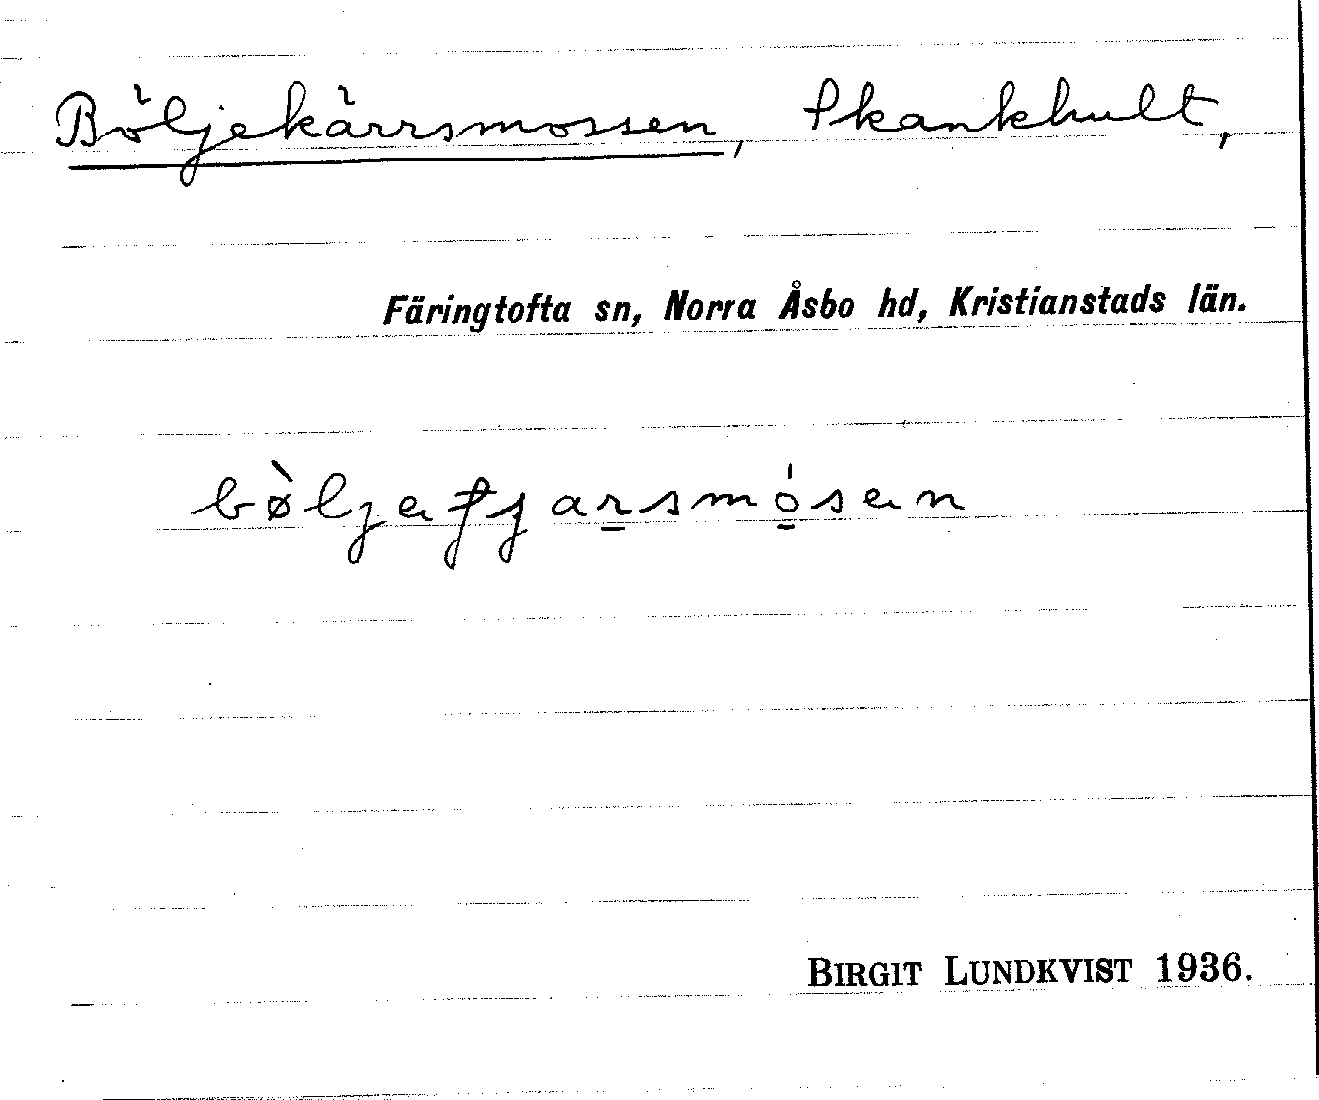 Böljekärrsmossen, Skankhult,
Färingtofta sn, Norra Åsbo hd, Kristianstads län.
BIRGIT LUNDKVIST 1936.